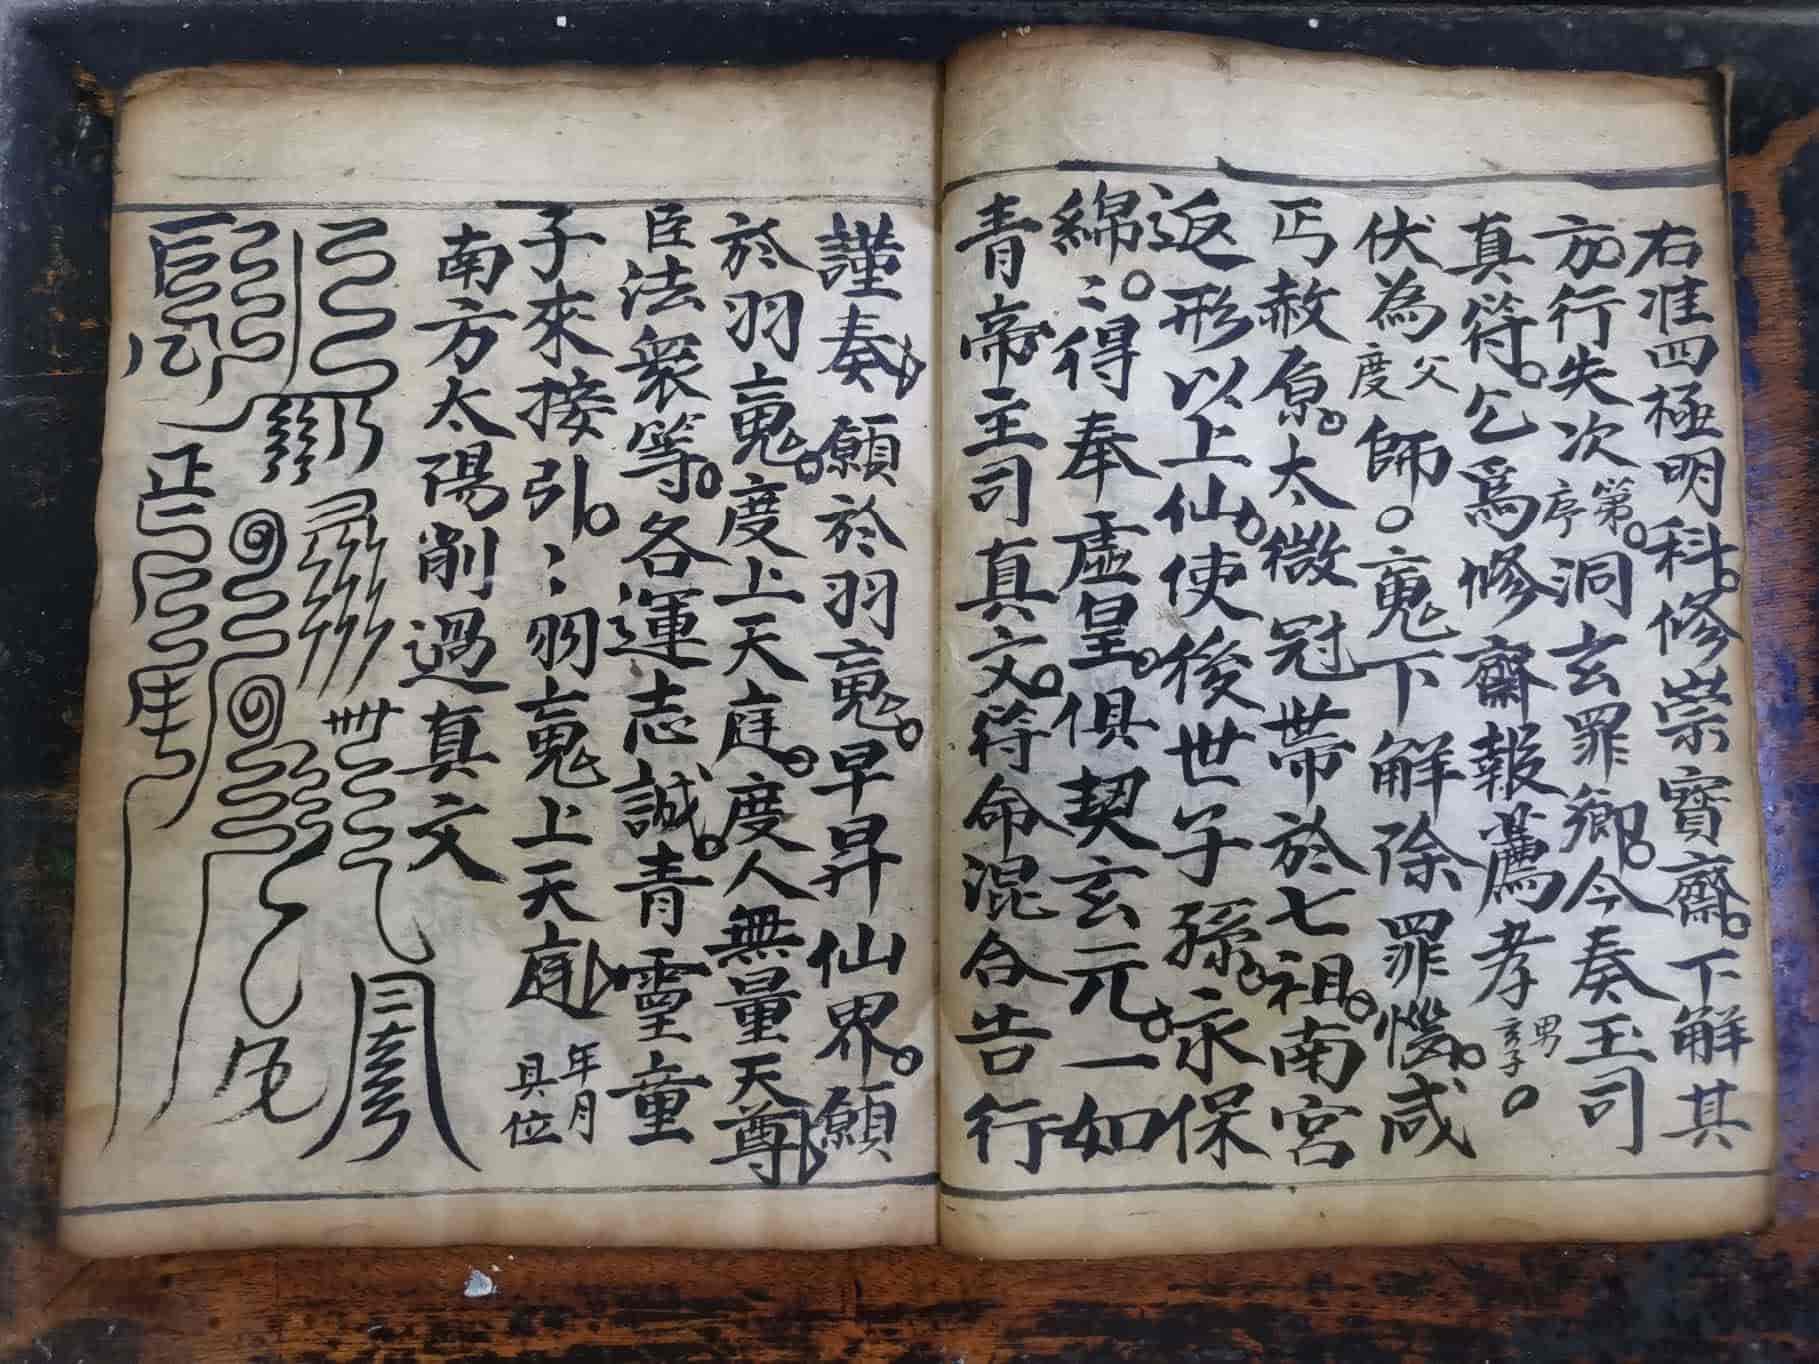 右准四極明科。修崇寶齋。下解其
方行失次第序。洞玄罪鄉。今奏玉司
真符。乞爲修齋報薦孝男玄子。
伏為父度師。○䰟下解除罪𢠵。咸
丐赦原。太微冠帶於七祖。南宮
返形以上仙。使後世子孫。永保
綿。〻得奉虛皇。俱契玄元。一如
青帝主司真文。符命混合告行
謹奏 願於羽䰟。早昇仙界。願
於羽䰟。度上天庭。度人無量天尊
臣法眾等。各運志誠。青靈童
子來接引。〻羽䰟上天庭 年月具位
南方太陽削過真文